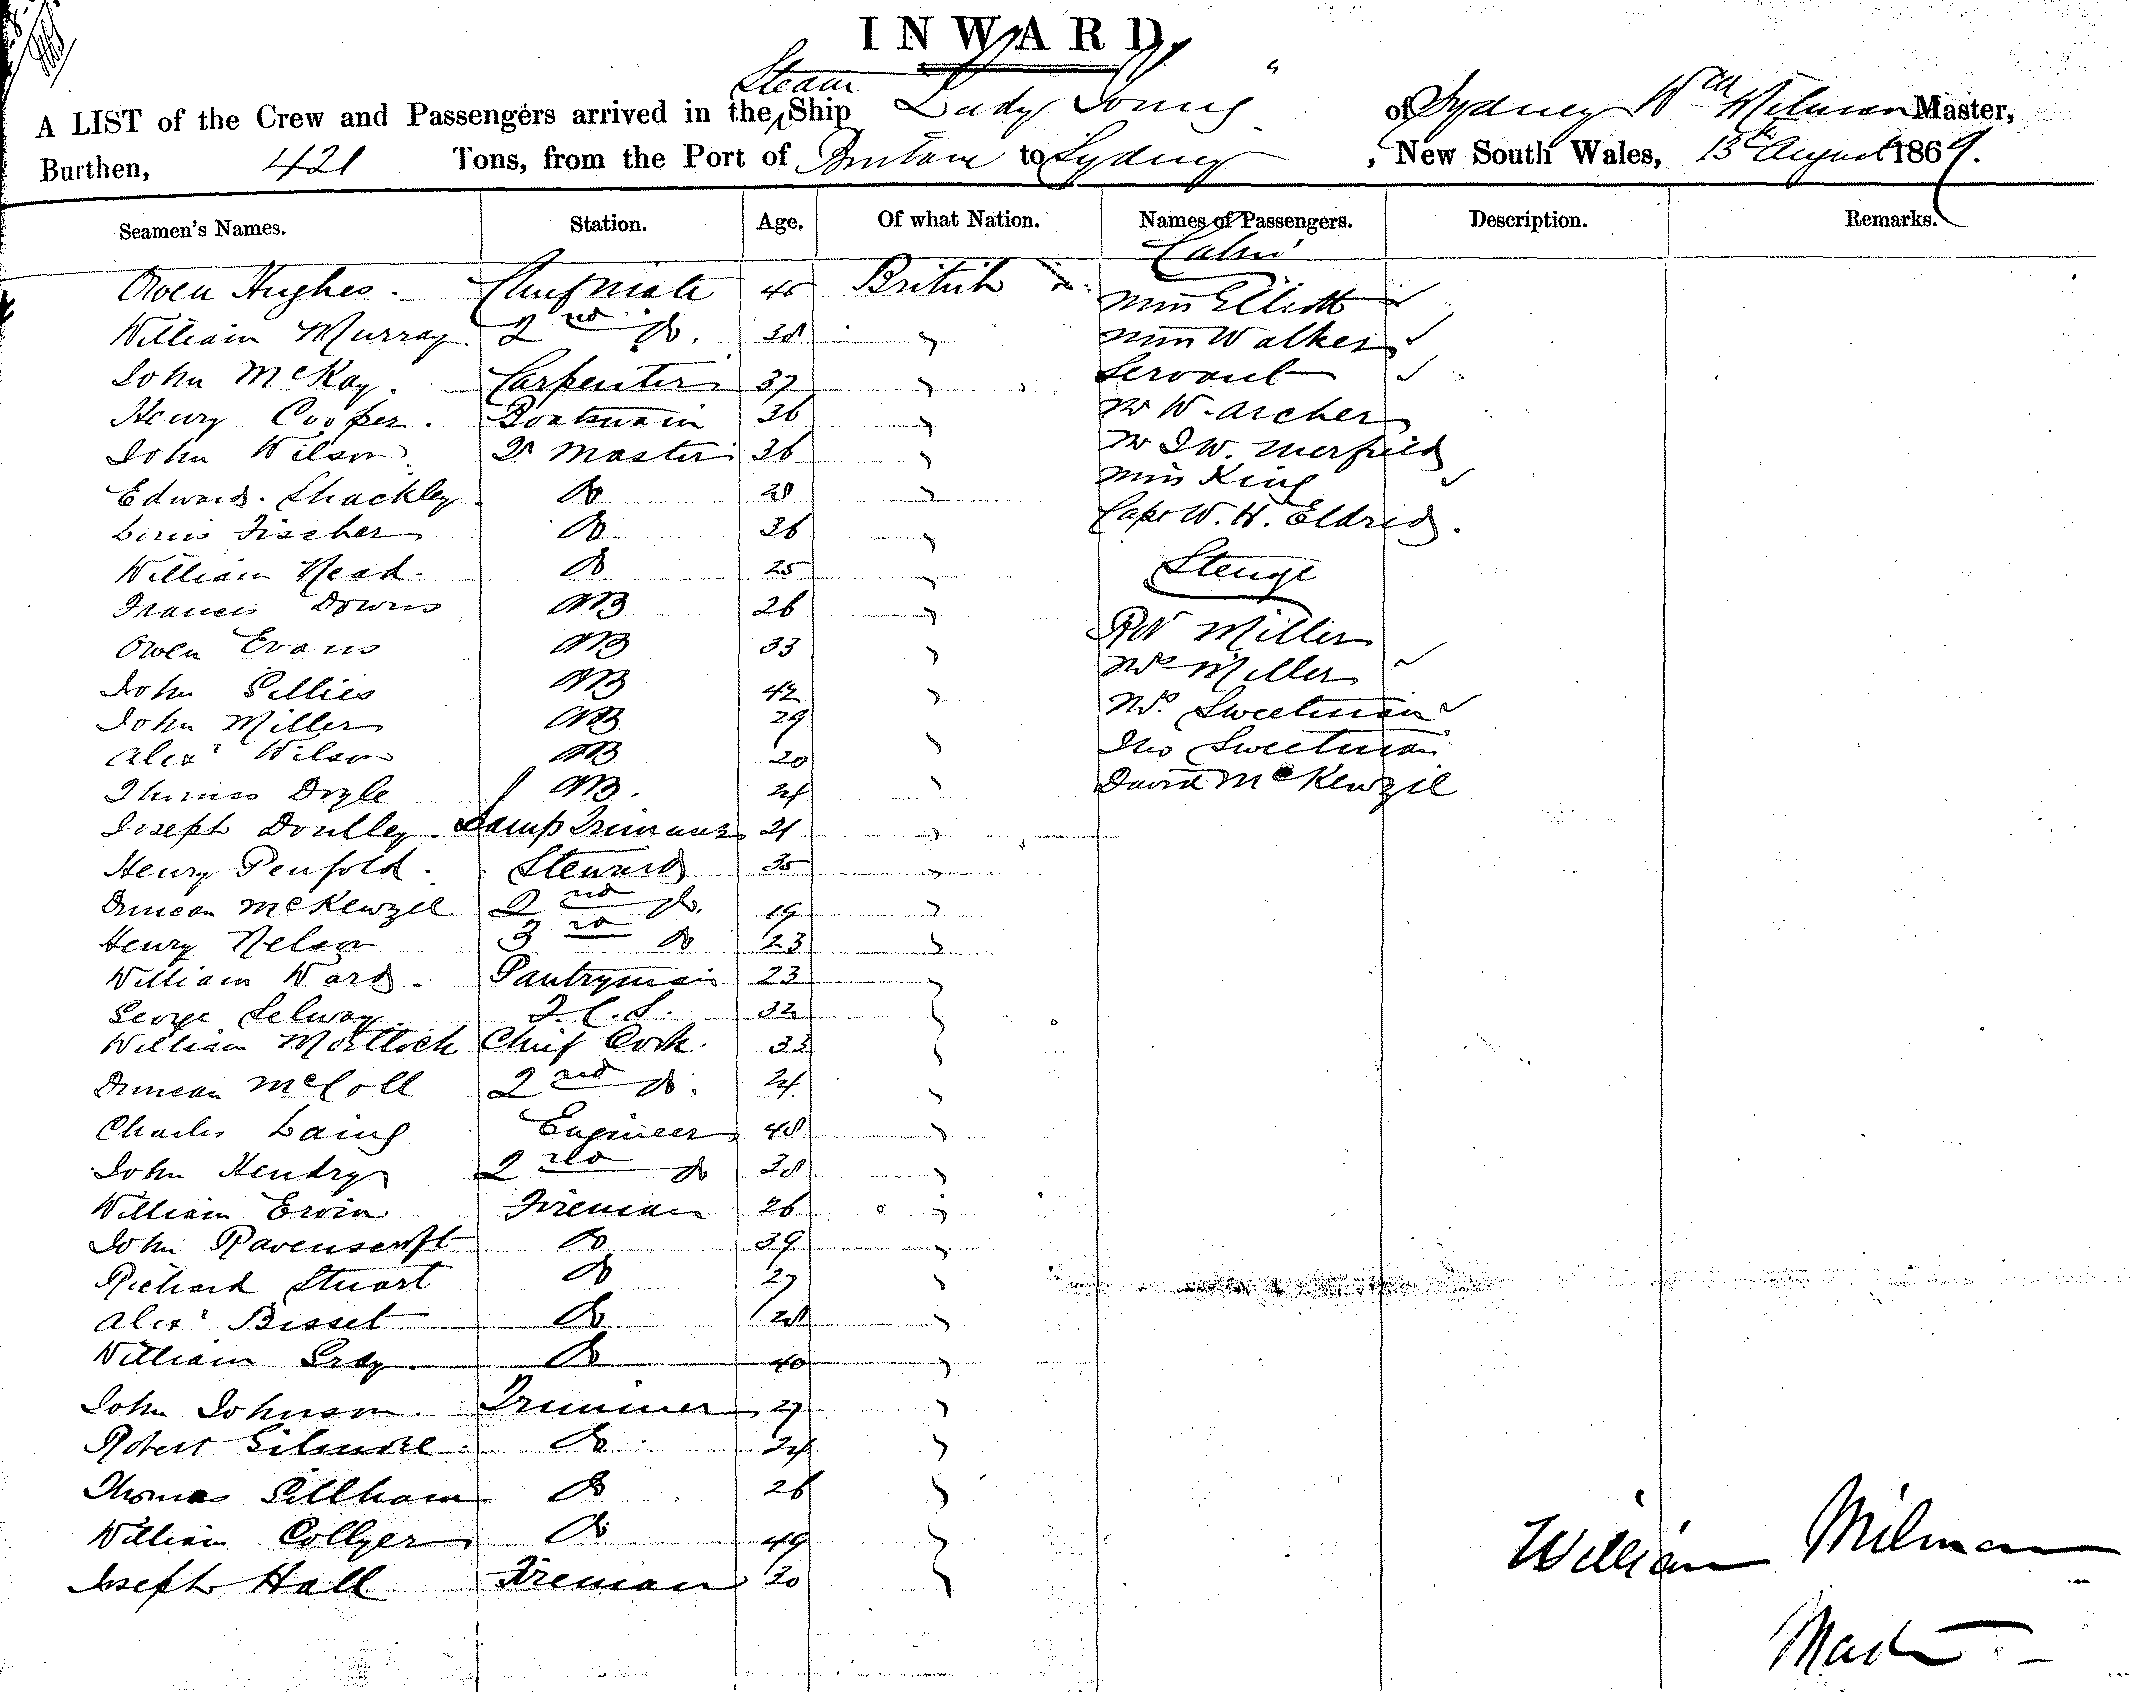 INWARD
Steam
A LIST of the Crew and Passengers arrived in the Ship "Lady Young" of Sydney Wm Milman Master,
Burthen, 421 Tons, from the Port of Brisbane to Sydney, New South Wales, 13th August 1869.
Seamen's Names. Station. Age. Of what Nation. Names of Passengers. Description. Remarks.
Cabin
Owen Hughes. Chief Mate 45 British Miss Elliott
William Murray 2nd Do. 38 " Miss Walker
John McKay. Carpenter 37 " Servant
Henry Cooper. Boatswain 36 " Mr W. Archer
John Wilson Qr Master 36 " Mr J W. Merfield
Edward Shackley Do 28 " Miss King
Louis Fischer Do 36 " Capt W. H. Eldred.
William Head. Do 25 " Steerage
Francis Downs AB 26 " RW Miller
Owen Evans AB 33 " Mrs Miller
John Gillies AB 42 " Mrs Sweetman
John Miller AB 29 " Jno Sweetman
Alexr Wilson AB 20 " David McKenzie
Thomas Doyle AB. 24 "
Joseph Lamp Trimmer 21 "
Henry Penfold. Steward 35 "
Duncan McKenzie 2nd Do. 19 "
Henry Nelson 3rd Do 23 "
William Ward. Pantryman 23 "
George Selway 32 "
William Mortlock Chief Cook. 33 "
Duncan McColl 2nd Do. 24 "
Charles Laing Engineer 48 "
John Hendry 2nd Do 38 "
William Ervin Fireman 26 "
John Ravenscroft Do 39 "
Richard Stuart Do 27 "
Alexr Bisset Do 28 "
William Gray Do 40 "
John Johnson. Trimmer 27 "
Robert Gilmore. Do 24 "
Thomas Gillham Do 26 "
William Collyer Do 49 "
Joseph Hall Fireman 30 "
William Milman
Master